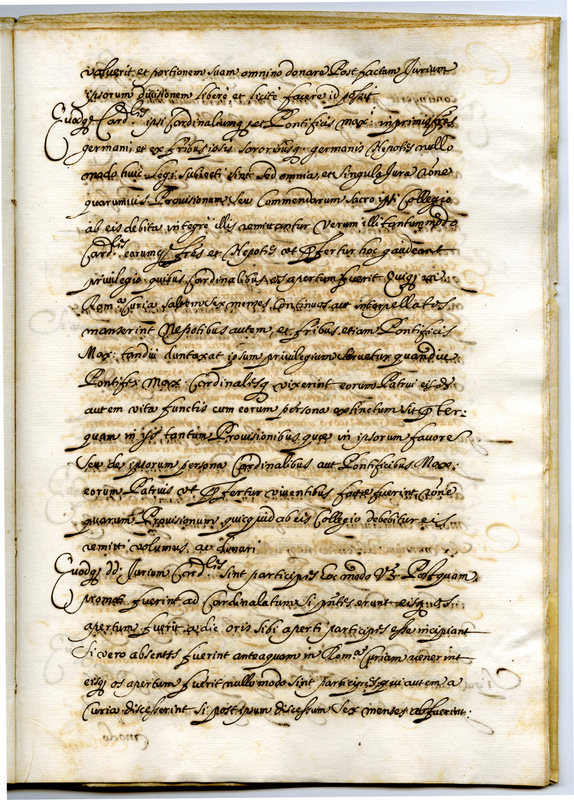 voluerit, et portionem suam omnino donare Post factam Jurium
ipsorum divisionem libere et licite facere id possit
Quodq; Card.les ipsi Cardinalium, et Pontificis Max: inprimis fres
germani, et ex fribus ipsis sororibusq; germanis Nepotes nullo
modo huic legi subiecti sint sed omnia, et singula Jura rone
quarumvis Provisionum seu Commendarum sacro Collegio
ab eis debita integre illis remittantur Verum illi tantummodo
Card.les eorumq; fres et Nepotes ut fertur hoc gaudeant
privilegio, quibus Cardinalibus os apertum fuerit Quiq; in
Rom.a Curia saltem sex menses continuos aut interpellatos
manserint Nepotibus autem, et fribus etiam Pontificis
Max: tandiu duntaxat ipsum privilegium servetur quandiu
Pontifex Max Cardinalesq; vixerint eorum Patrui eisd
autem vita functis cum eorum persona extinctum sit
quam in ijs tantum Provisionibus quae in ipsorum favore
seu de ipsorum persona Cardinalibus aut Pontificibus Max:
eorum Patruis ut fertur viventibus factae fuerint, rone
quarum Provisionum, quicquid ab eis Collegio debebitur eis
remitti volumus, ac donari
Quodq; dd: Jurium Card.les sint participes hoc modo Vz. Postquam
promoti fuerint ad Cardinalatum si pntes erunt eisq; os
apertum fuerit a die oris sibi aperti participes esse incipiant
Si vero absentes fuerint anteaquam in Rom.a Curiam venerint
eisq; os apertum fuerit nullo modo sint participes qui autem a
Curia discesserint si post ipsum discessum sex menses abfuerint: